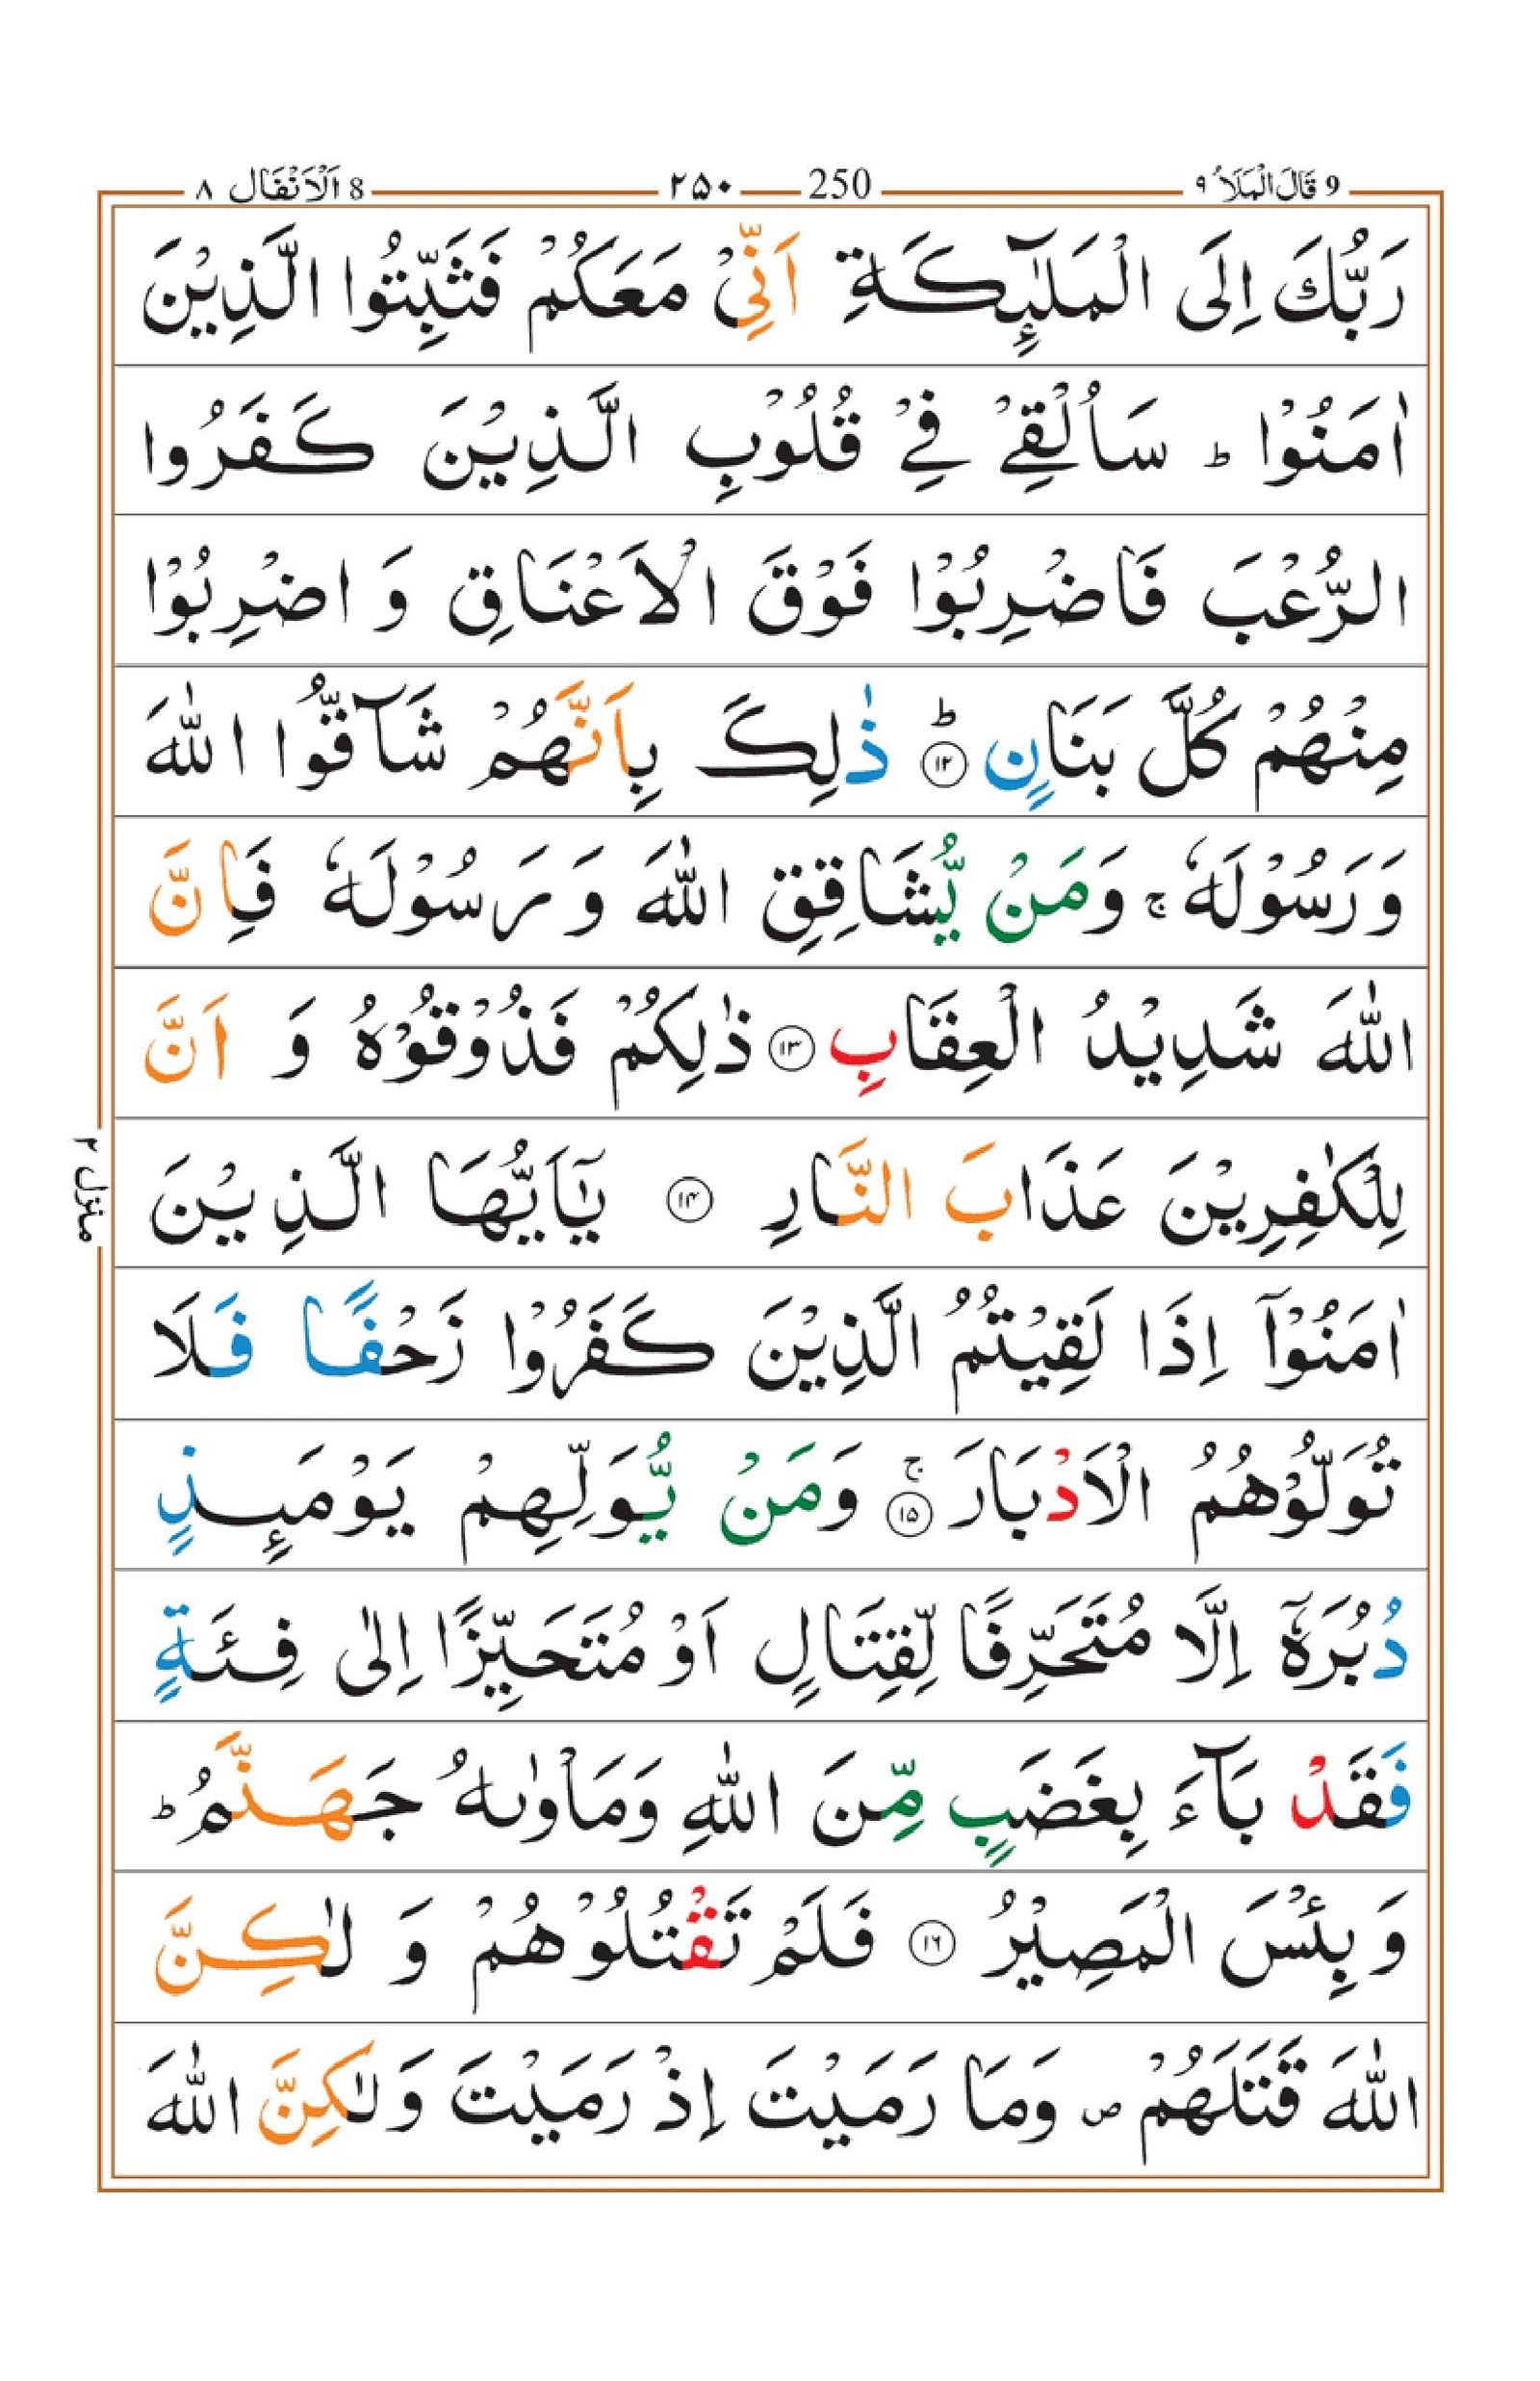 9 قَالَ الْمَلَاُ ٩ 250 ٢٥٠ 8 اَلْاَنْفَال ٨
رَبُّكَ اِلَى الْمَلٰٓئِكَةِ اَنِّیْ مَعَكُمْ فَثَبِّتُوا الَّذِیْنَ
اٰمَنُوْا ؕ سَاُلْقِیْ فِیْ قُلُوْبِ الَّذِیْنَ كَفَرُوا
الرُّعْبَ فَاضْرِبُوْا فَوْقَ الْاَعْنَاقِ وَ اضْرِبُوْا
مِنْهُمْ كُلَّ بَنَانٍ ؕ ۝۱۲ ذٰلِكَ بِاَنَّهُمْ شَآقُّوا اللّٰهَ
وَ رَسُوْلَهٗ ۚ وَمَنْ یُّشَاقِقِ اللّٰهَ وَ رَسُوْلَهٗ فَاِنَّ
اللّٰهَ شَدِیْدُ الْعِقَابِ ۝۱۳ ذٰلِكُمْ فَذُوْقُوْهُ وَ اَنَّ
لِلْكٰفِرِیْنَ عَذَابَ النَّارِ ۝۱۴ یٰۤاَیُّهَا الَّذِیْنَ
اٰمَنُوْۤا اِذَا لَقِیْتُمُ الَّذِیْنَ كَفَرُوْا زَحْفًا فَلَا
تُوَلُّوْهُمُ الْاَدْبَارَ ۚ ۝۱۵ وَمَنْ یُّوَلِّهِمْ یَوْمَئِذٍ
دُبُرَهٗۤ اِلَّا مُتَحَرِّفًا لِّقِتَالٍ اَوْ مُتَحَیِّزًا اِلٰی فِئَةٍ
فَقَدْ بَآءَ بِغَضَبٍ مِّنَ اللّٰهِ وَمَاْوٰىهُ جَهَنَّمُ ؕ
وَ بِئْسَ الْمَصِیْرُ ۝۱۶ فَلَمْ تَقْتُلُوْهُمْ وَ لٰكِنَّ
اللّٰهَ قَتَلَهُمْ ۪ وَمَا رَمَیْتَ اِذْ رَمَیْتَ وَلٰكِنَّ اللّٰهَ
منزل ٢